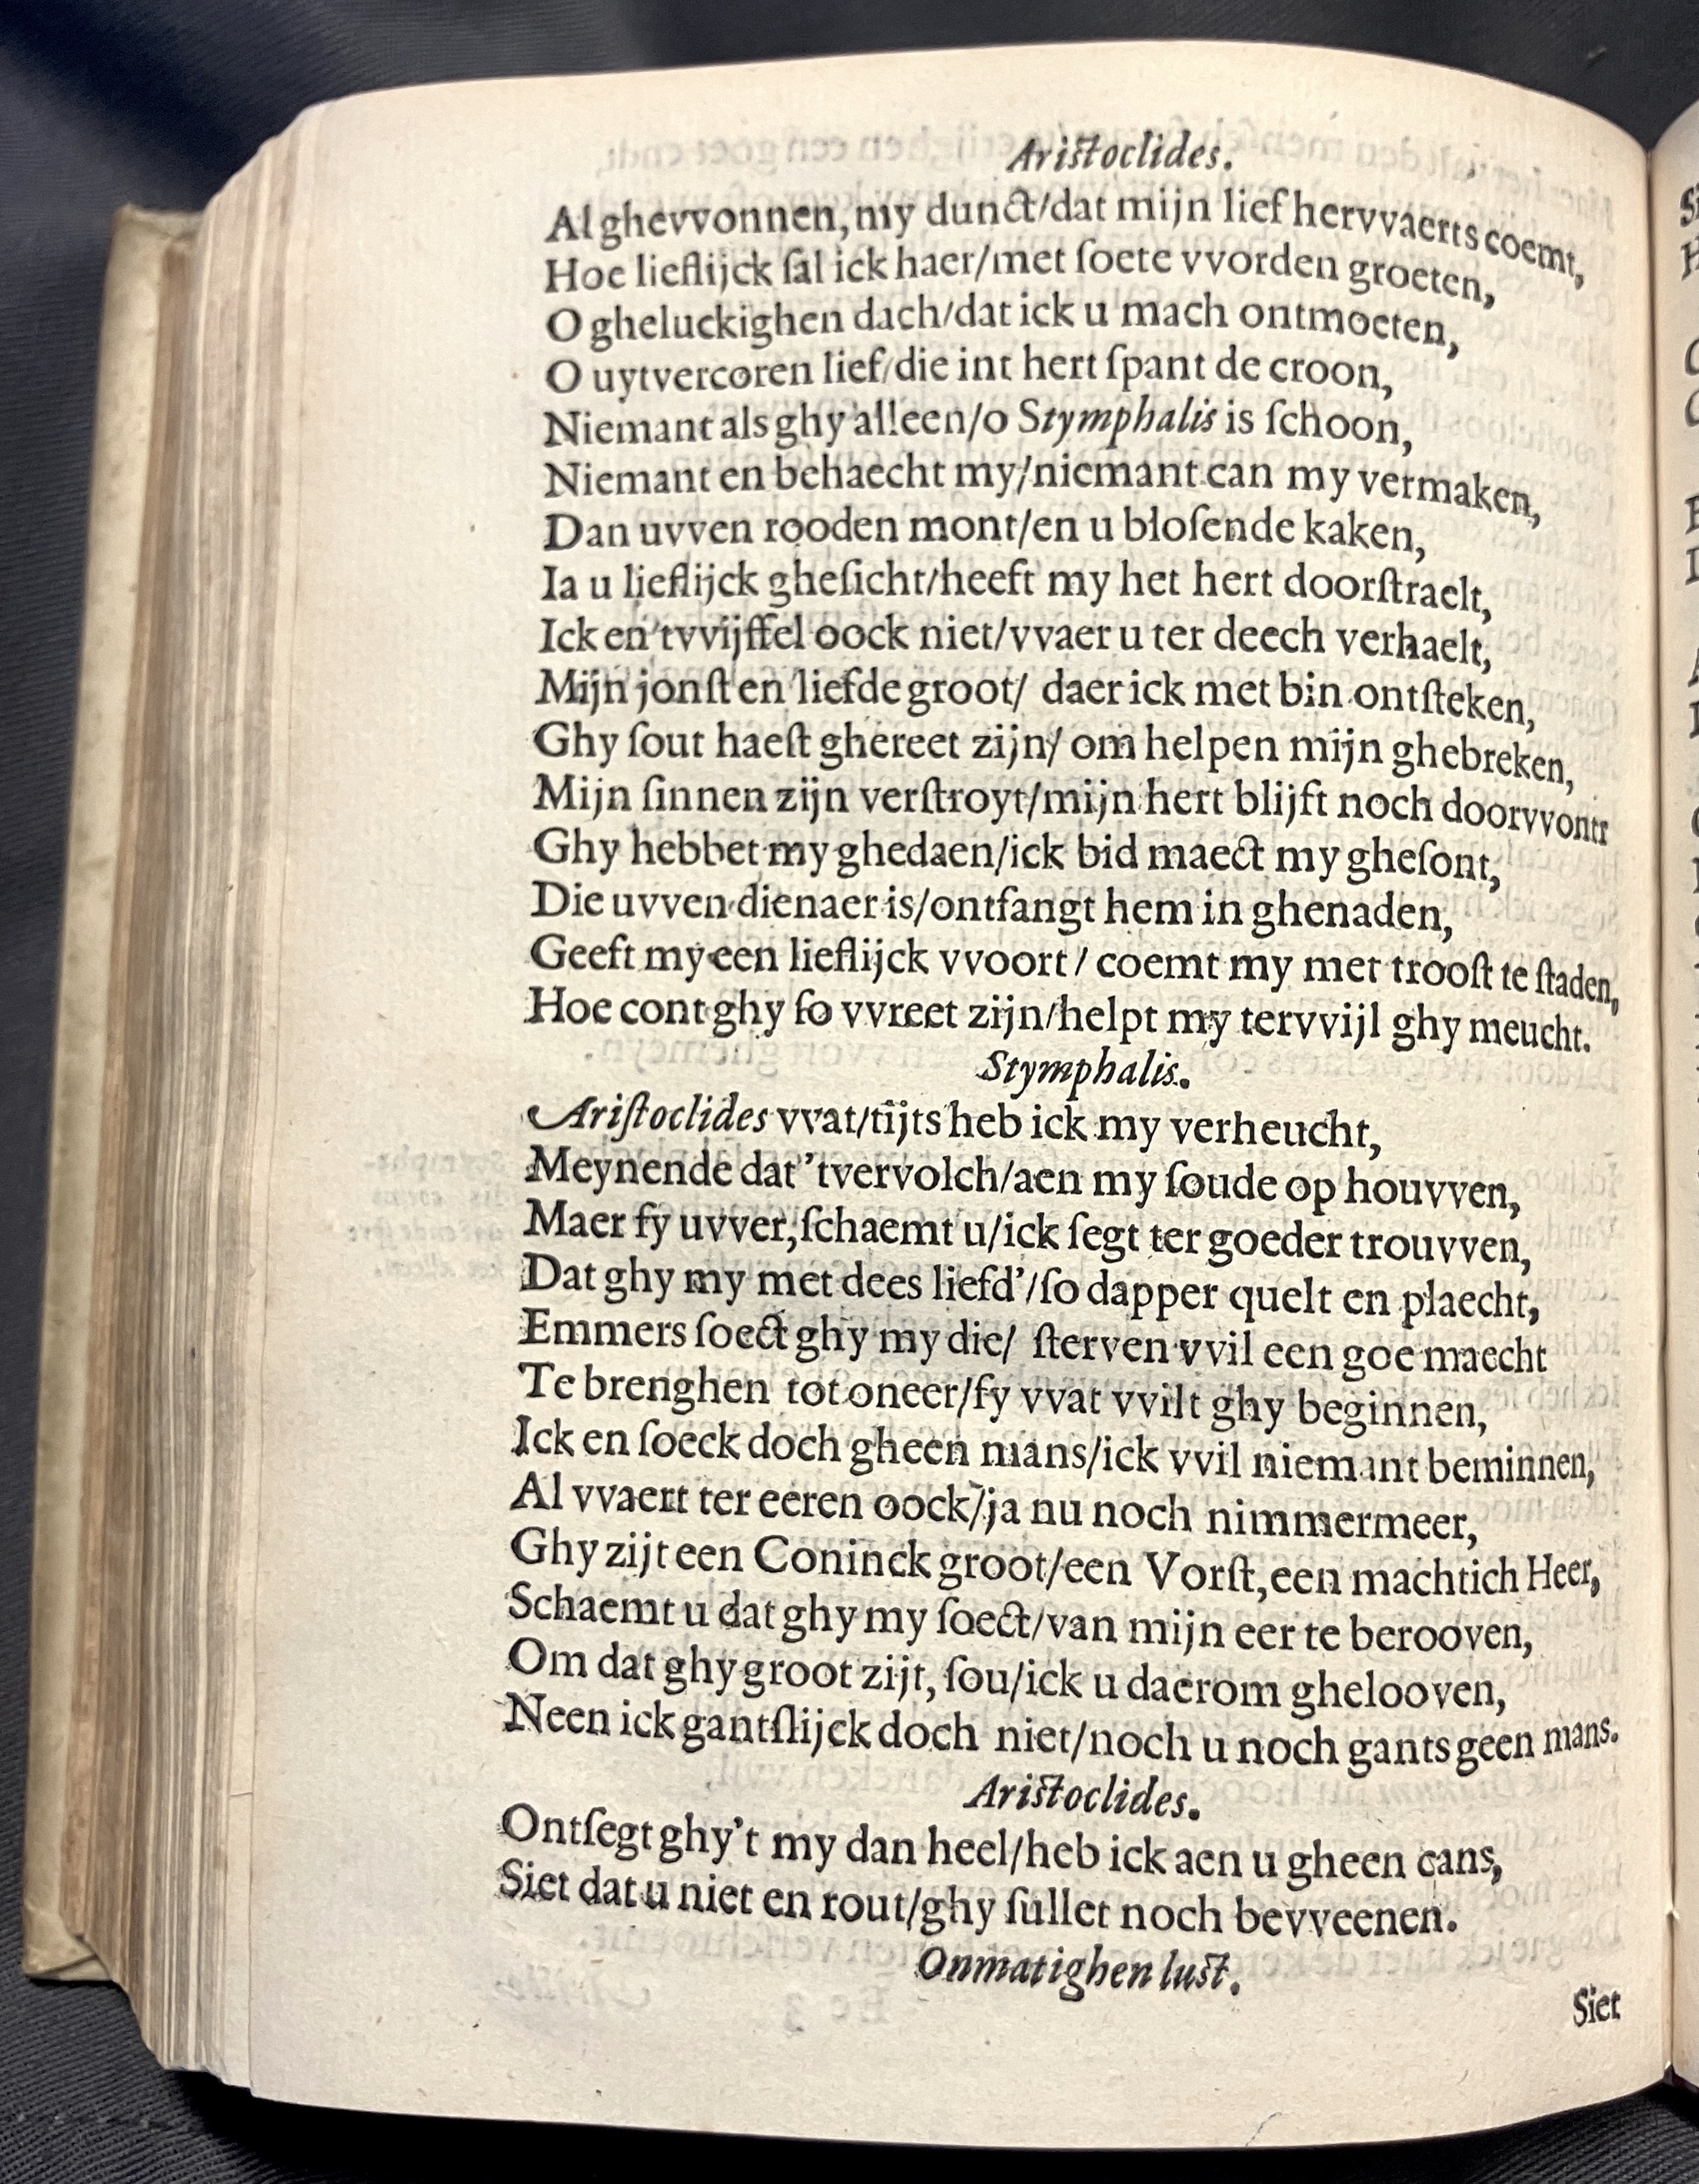 Aristoclides.
Al ghevvonnen, my dunct/dat mijn lief hervvaerts coemt,
Hoe lieflijck ſal ick haer/met ſoete vvorden groeten,
O gheluckighen dach/dat ick u mach ontmoeten,
O uytvercoren lief/die int hert ſpant de croon,
Niemant als ghy alleen/o Stymphalis is ſchoon,
Niemant en behaecht my/niemant can my vermaken,
Dan uvven rooden mont/en u bloſende kaken,
Ia u lieflijck gheſicht/heeft my het hert doorſtraelt,
Ick en 'tvvijffel oock niet/vvaer u ter deech verhaelt,
Mijn jonſt en liefde groot/ daer ick met bin ontſteken,
Ghy ſout haeſt ghereet zijn/ om helpen mijn ghebreken,
Mijn ſinnen zijn verſtroyt/mijn hert blijft noch doorvvontr
Ghy hebbet my ghedaen/ick bid maect my gheſont,
Die uvven dienaer is/ontfangt hem in ghenaden,
Geeft my een lieflijck vvoort/ coemt my met trooſt te ſtaden,
Hoe cont ghy ſo vvreet zijn/helpt my tervvijl ghy meucht.
Stymphalis.
Ariſtoclides vvat/tijts heb ick my verheucht,
Meynende dat 'tvervolch/aen my ſoude op houvven,
Maer fy uvver, ſchaemt u/ick ſegt ter goeder trouvven,
Dat ghy my met dees liefd'/ſo dapper quelt en plaecht,
Emmers ſoect ghy my die/ ſterven vvil een goe maecht
Te brenghen tot oneer/fy vvat vvilt ghy beginnen,
Ick en ſoeck doch gheen mans/ick vvil niemant beminnen,
Al vvaert ter eeren oock/ja nu noch nimmermeer,
Ghy zijt een Coninck groot/een Vorſt, een machtich Heer,
Schaemt u dat ghy my ſoect/van mijn eer te berooven,
Om dat ghy groot zijt, ſou/ick u daerom ghelooven,
Neen ick gantſlijck doch niet/noch u noch gants geen mans.
Aristoclides.
Ontſegt ghy't my dan heel/heb ick aen u gheen cans,
Siet dat u niet en rout/ghy ſullet noch bevveenen.
Onmatighen lust.
Siet